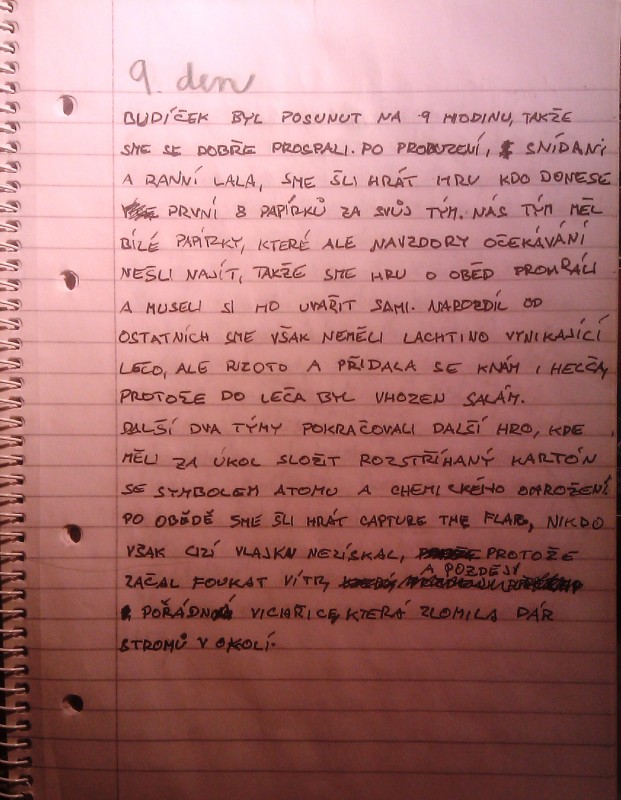 9. den
BUDÍČEK BYL POSUNUT NA 9 HODINU, TAKŽE
SME SE DOBŘE PROSPALI. PO PROBUZENÍ, SNÍDANI
A RANNÍ LALA, SME ŠLI HRÁT HRU KDO DONESE
PRVNÍ 8 PAPÍRKŮ ZA SVŮJ TÝM. NÁŠ TÝM MĚL
BÍLÉ PAPÍRKY, KTERÉ ALE NAVZDORY OČEKÁVÁNÍ
NEŠLI NAJÍT, TAKŽE SME HRU O OBĚD PROHRÁLI
A MUSELI SI HO UVAŘIT SAMI. NAROZDÍL OD
OSTATNÍCH SME VŠAK NEMĚLI LACHTINO VYNIKAJÍCÍ
LEČO, ALE RIZOTO A PŘIDALA SE KNÁM I HELČA,
PROTOŽE DO LEČA BYL VHOZEN SALÁM.
DALŠÍ DVA TÝMY POKRAČOVALI DALŠÍ HRO, KDE
MĚLI ZA ÚKOL SLOŽIT ROZSTŘÍHANÝ KARTÓN
SE SYMBOLEM ATOMU A CHEMICKÉHO OHROŽENÍ
PO OBĚDĚ SME ŠLI HRÁT CAPTURE THE FLAG, NIKDO
VŠAK CIZÍ VLAJKU NEZÍSKAL, PROTOŽE
ZAČAL FOUKAT VÍTR, A POZDĚJI
POŘÁDNÁ VICHŘICE, KTERÁ ZLOMILA PÁR
STROMŮ V OKOLÍ.